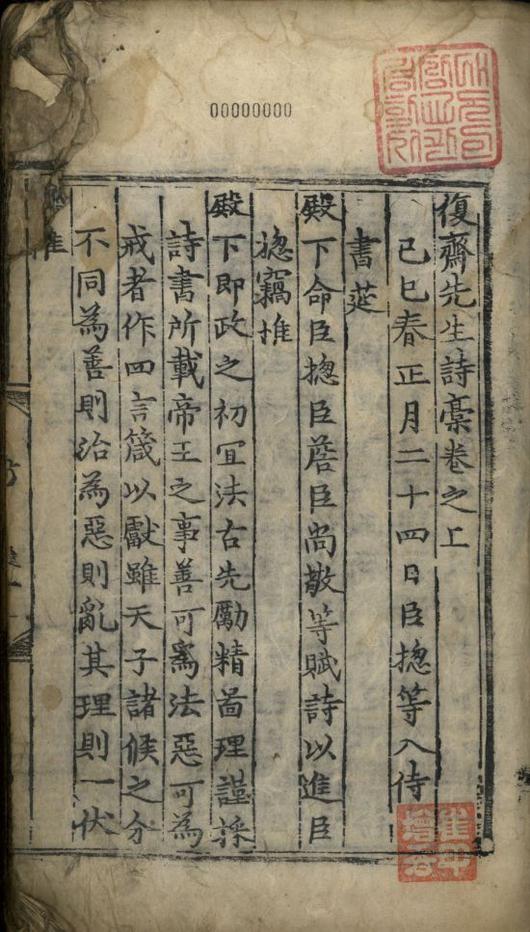 00000000
復齋先生詩藁卷之上
己巳春正月二十四日臣揔等入侍
書莚
殿下命臣揔臣詹臣尚敬等賦詩以進臣
揔竊推
殿下即政之初冝法古先勵精啚理謹採
詩書所載帝王之事善可爲法惡可為
戒者作四言箴以獻雖天子諸侯之分
不同為善則治為惡則亂其理則一伏
惟